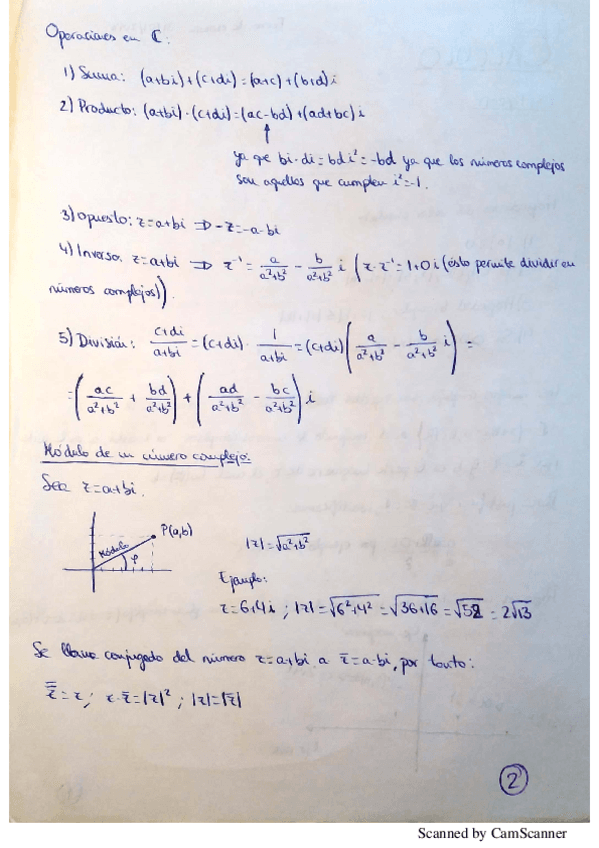 Operaciones en ℂ:
1) Suma: (a+bi)+(c+di)=(a+c)+(b+d)i
2) Producto: (a+bi)·(c+di)=(ac-bd)+(ad+bc)i
ya que bi·di=bdi²=-bd ya que los números complejos
son aquellos que cumplen i²=-1.
3) Opuesto: z=a+bi ⇒ -z=-a-bi
4) Inverso: z=a+bi ⇒ z⁻¹= a/(a²+b²) - b/(a²+b²) i (z·z⁻¹=1+0i (ésto permite dividir en
números complejos)).
5) División: (c+di)/(a+bi) =(c+di)· 1/(a+bi) =(c+di)( a/(a²+b²) - b/(a²+b²) i ) =
=( ac/(a²+b²) + bd/(a²+b²) ) + ( ad/(a²+b²) - bc/(a²+b²) ) i
Módulo de un número complejo:
Sea z=a+bi.
P(a,b)
Módulo φ
|z|=√(a²+b²)
Ejemplo:
z=6+4i ; |z|=√(6²+4²) =√(36+16) =√52 = 2√13
Se llama conjugado del número z=a+bi a z̄=a-bi, por tanto:
z̿=z; z·z̄=|z|² ; |z|=|z̄|
2
Scanned by CamScanner